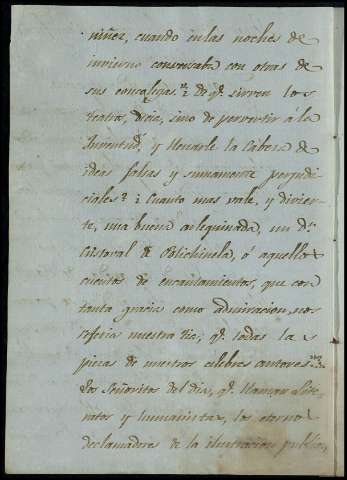 niñez, cuando en las noches de
invierno conversaba con otras de
sus concolegas. De q.e sirven los
teatros, decia, sino de pervertir á la
Juventud, y llenarle la Cabeza de
ideas falsas y sumamente perjudi
ciales? ¿Cuanto mas vale, y divier-
te, una buena arlequinada, un D.n
Cristoval de Polichinela, ó aquellos
cuentos de encantamientos, que con
tanta gracia como admiracion, nos
referia nuestra tia, q.e todas las
piezas de nuestros celebres autores
Los Señoritos del dia, q.e llaman Lite-
ratos y humanistas, los eternos
declamadores de la ilustracion publica,